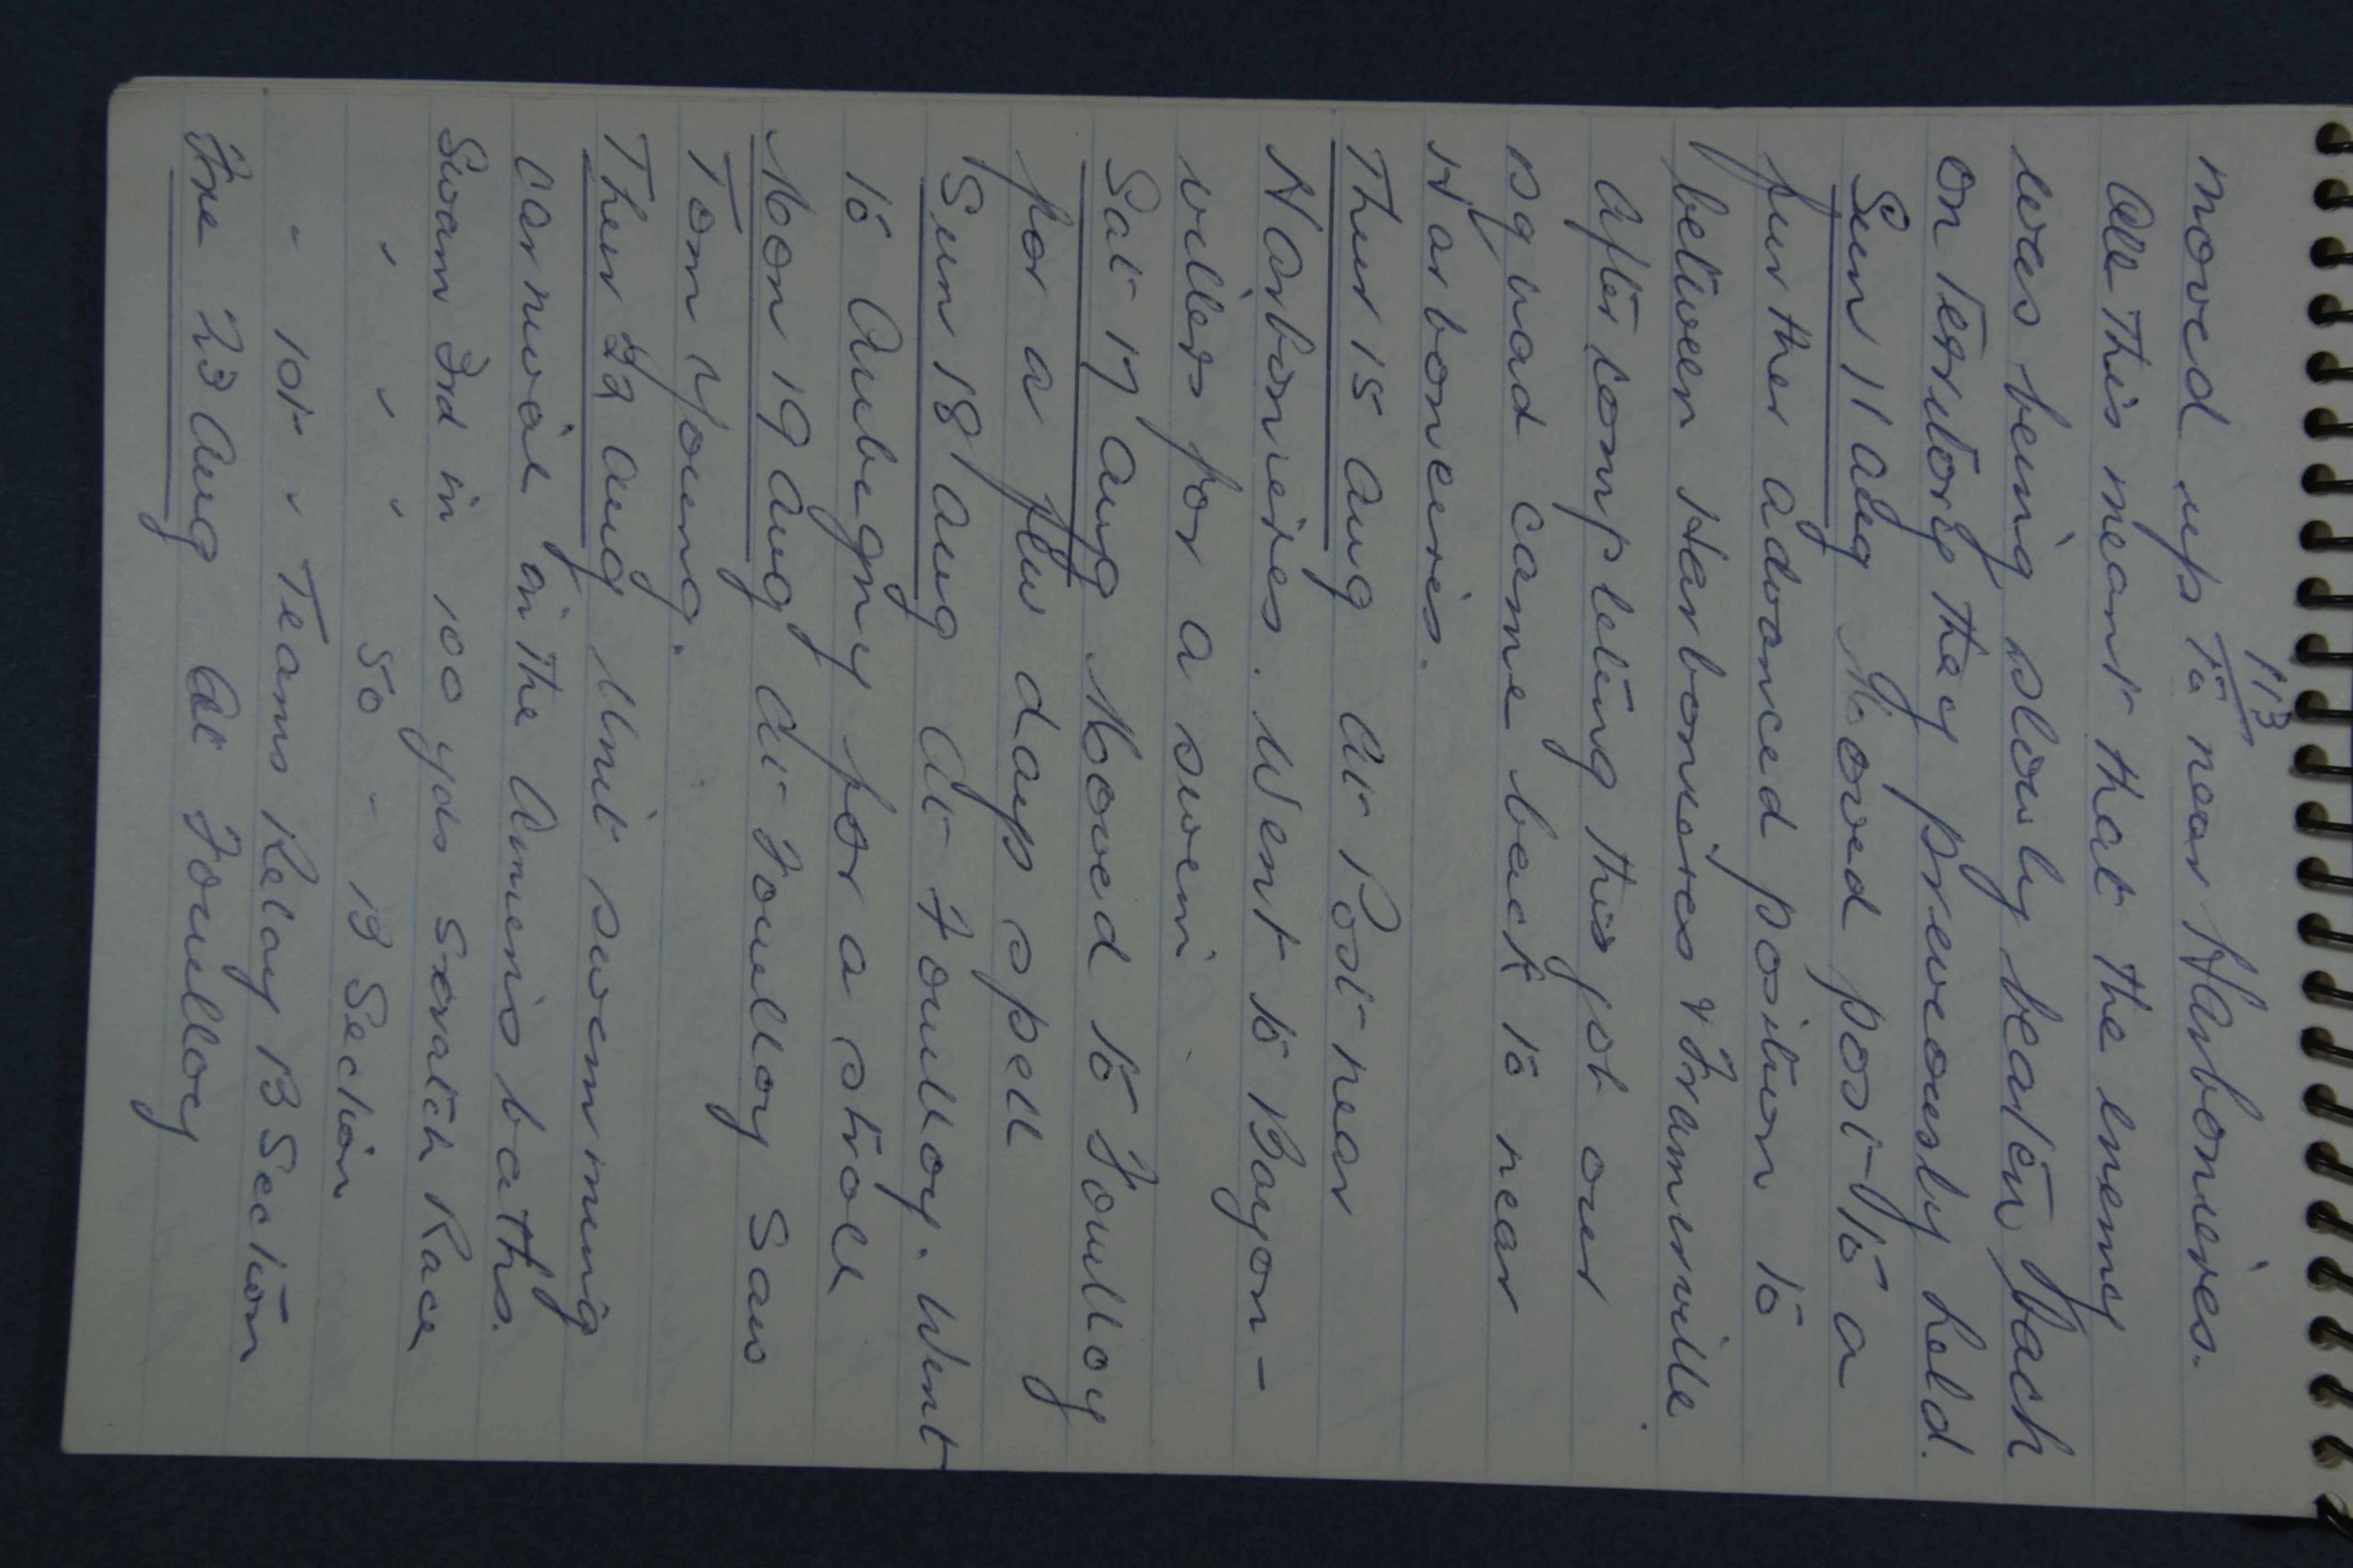 113
moved up to near Harbonieres.
All this meant that the enemy
was being slowly beaten back
on territory they previously held.
Sun 11 Aug Moved post to a
further advanced position to
between Harbonieres & Framerville.
After completing this job our
squad came back to near
Harboneris.
Thur 15 Aug At Post near
Harbonieres. Went to Bayon-
villers for a swim.
Sat 17 Aug Moved to Fouilloy
for a few days spell
Sun 18 Aug At Fouilloy. Went
to Aubigny for a stroll
Mon 19 Aug At Fouilloy Saw
Tom Young.
Thur 22 Aug Unit swimming
carnival in the Amiens baths.
Swam 3rd in 100 yds Scratch Race
" " " 50 " B Section
" 1st " Teams Relay B Section
Fri 23 Aug At Fouilloy